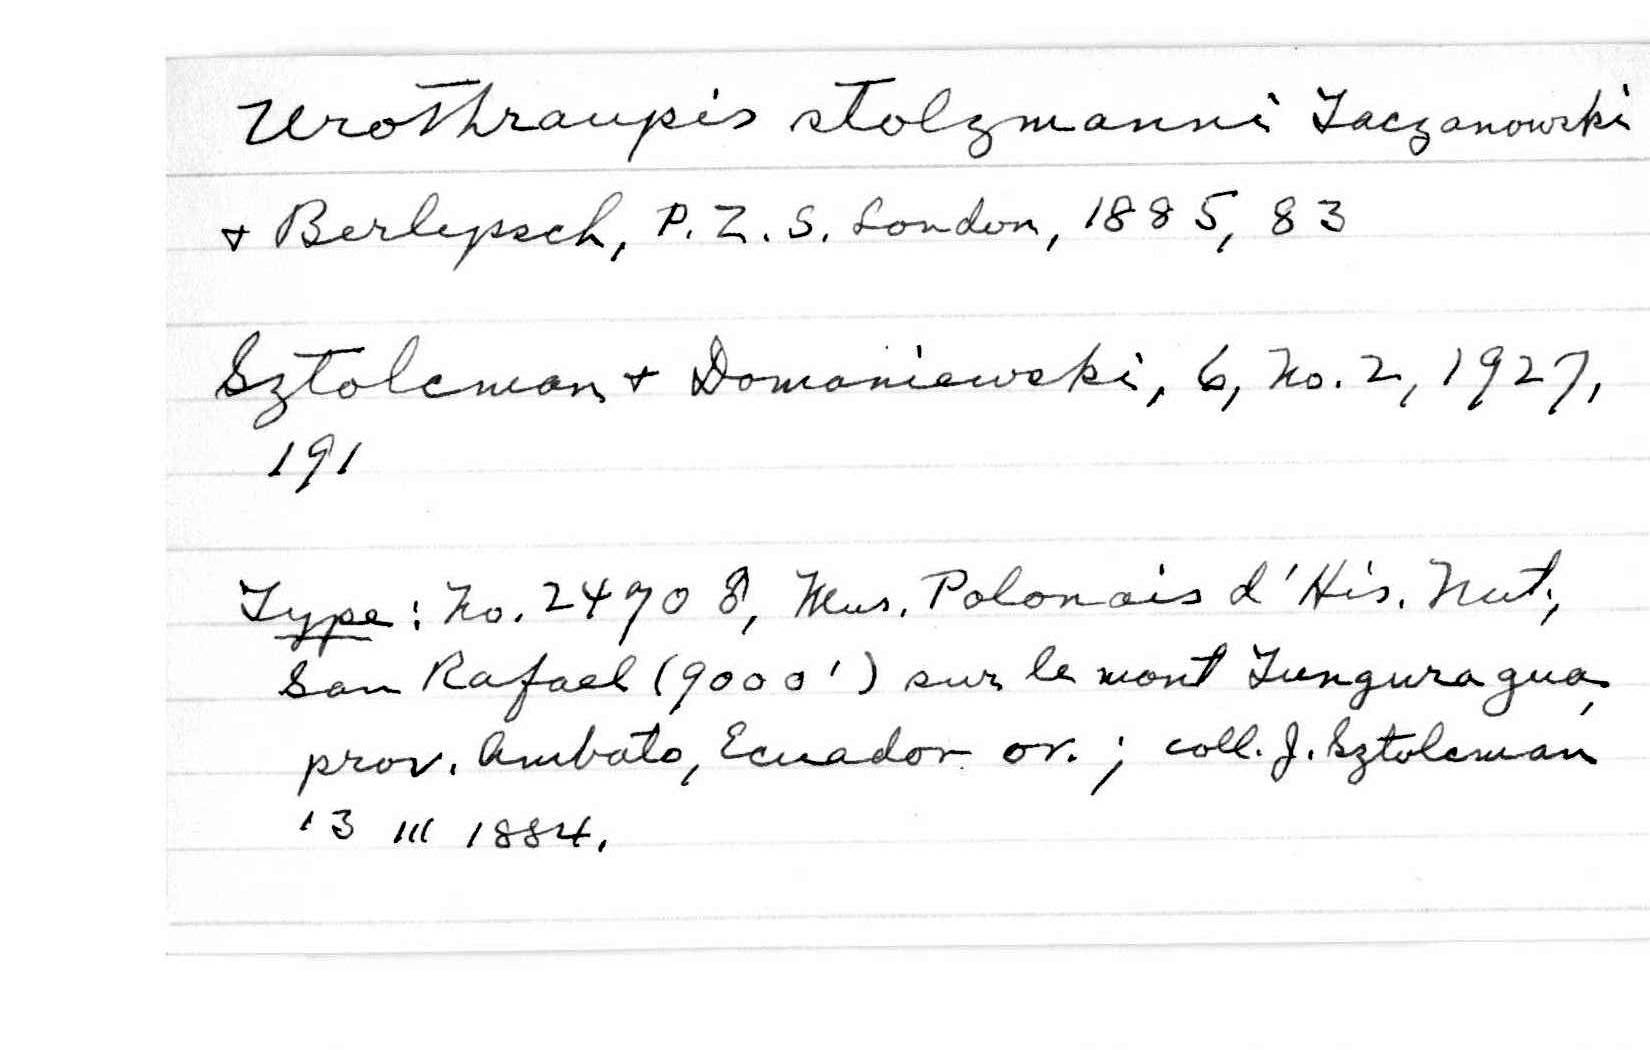 Urothraupis stolzmanni Taczanowski
+ Berlepsch, P. Z. S. London, 1885, 83
Sztolcman + Domaniewski, 6, No. 2, 1927,
191
Type: No. 24908, Mus. Polonais d'His. Nat.,
San Rafael (9000') sur le mont Tunguragua,
prov. Ambato, Ecuador or. ; coll. J. Sztolcman
13 III 1884.